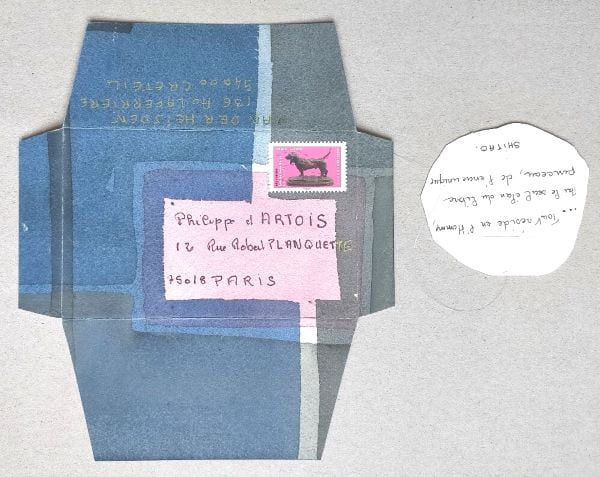 VAN DER HEIJDEN
136 Av LAFERRIERE
94000 CRETEIL
Philippe d'ARTOIS
12 Rue Robert PLANQUETTE
75018 PARIS
... Tout réside en l'Homme,
Par le seul élan du libre
pinceau, de l'encre unique
SHITAO.